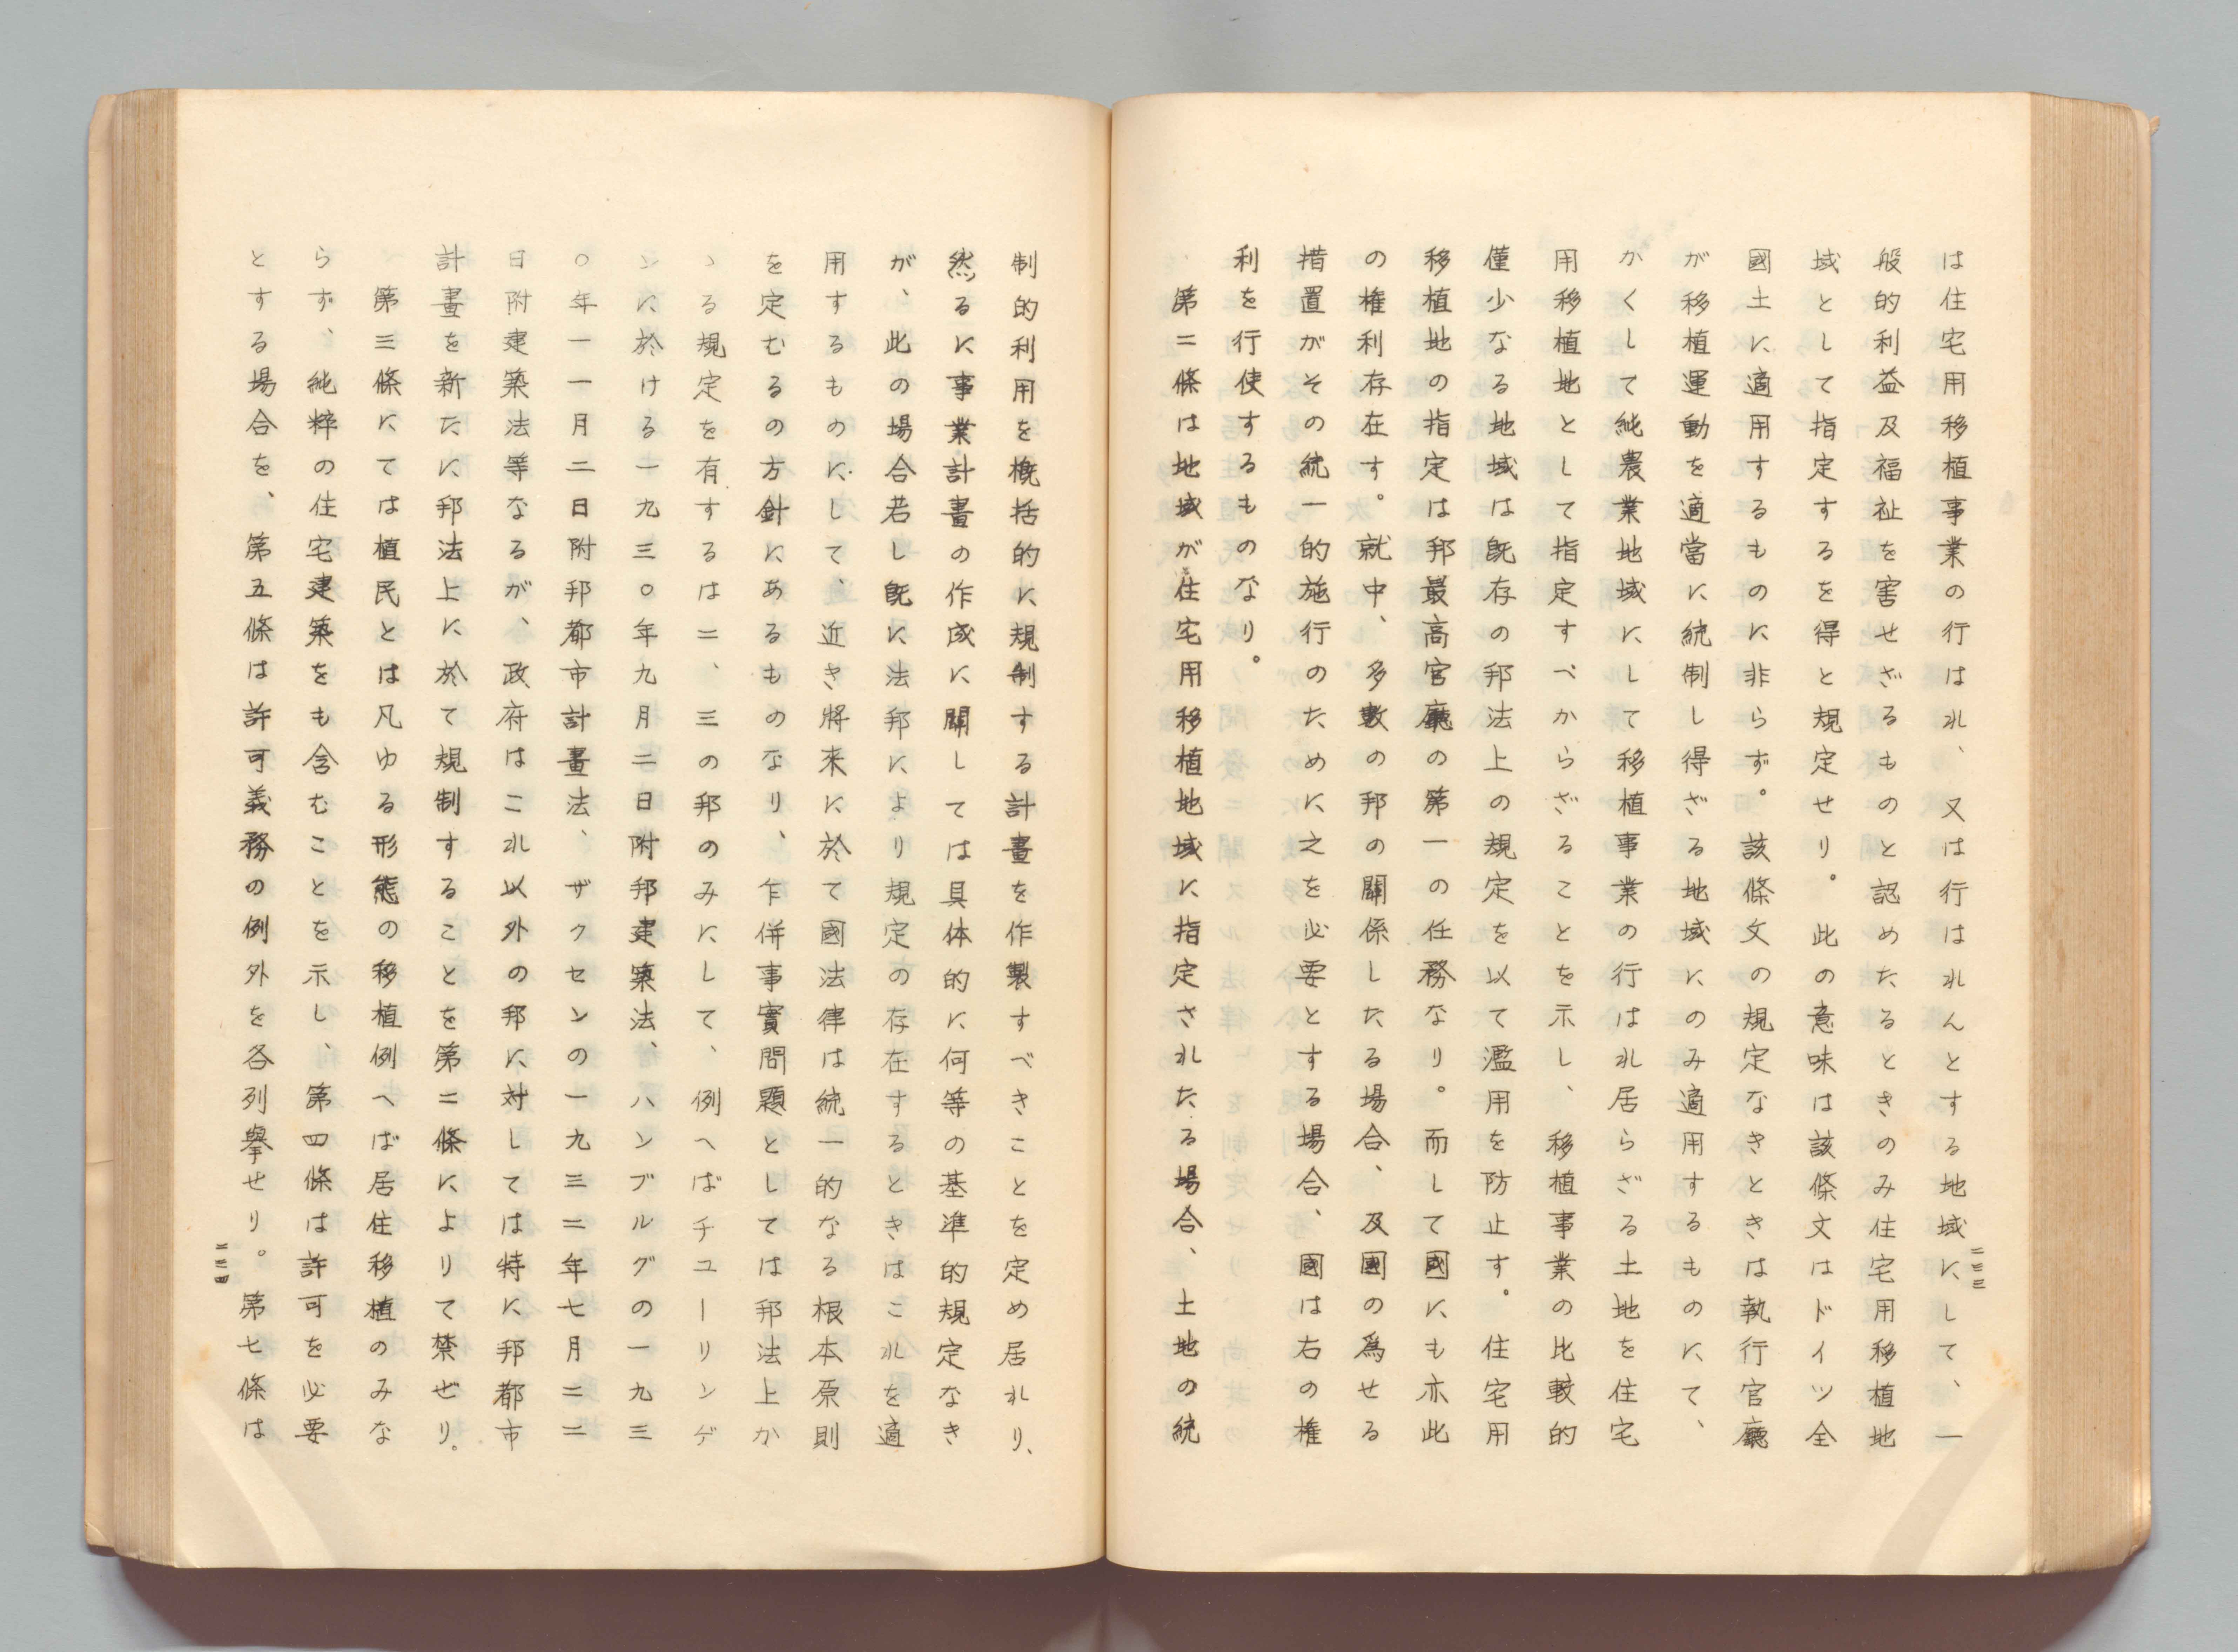 は住宅用移植事業の行はれ、又は行はれんとする地域にして、一
般的利益及福祉を害せざるものと認めたるときのみ住宅用移植地
域として指定するを得と規定せり。此の意味は該條文はドイツ全
國土に適用するものに非らず。該條文の規定なきときは執行官廳
が移植運動を適當に統制し得ざる地域にのみ適用するものにて、
かくして純農業地域にして移植事業の行はれ居らざる土地を住宅
用移植地として指定すべからざることを示し、移植事業の比較的
僅少なる地域は既存の邦法上の規定を以て濫用を防止す。住宅用
移植地の指定は邦最高官廳の第一の任務なり。而して國にも亦此
の権利存在す。就中、多數の邦の關係したる場合、及國の爲せる
措置がその統一的施行のために之を必要とする場合、國は右の権
利を行使するものなり。
第二條は地域が住宅用移植地域に指定されたる場合、土地の統
二三三
制的利用を概括的に規制する計畫を作製すべきことを定め居れり、
然るに事業計畫の作成に關しては具体的に何等の基準的規定なき
が、此の場合若し既に法邦により規定の存在するときはこれを適
用するものにして、近き將來に於て國法律は統一的なる根本原則
を定むるの方針にあるものなり、乍併事實問題としては邦法上か
ゝる規定を有するは二、三の邦のみにして、例へばチユーリンゲ
ンに於ける一九三〇年九月二日附邦建築法、ハンブルグの一九三
〇年一一月二日附邦都市計畫法、ザクセンの一九三二年七月二二
日附建築法等なるが、政府はこれ以外の邦に対しては特に邦都市
計畫を新たに邦法上に於て規制することを第二條によりて禁ぜり。
第三條にては植民とは凡ゆる形態の移植例へば居住移植のみな
らず、純粹の住宅建築をも含むことを示し、第四條は許可を必要
とする場合を、第五條は許可義務の例外を各列擧せり。第七條は
二三四